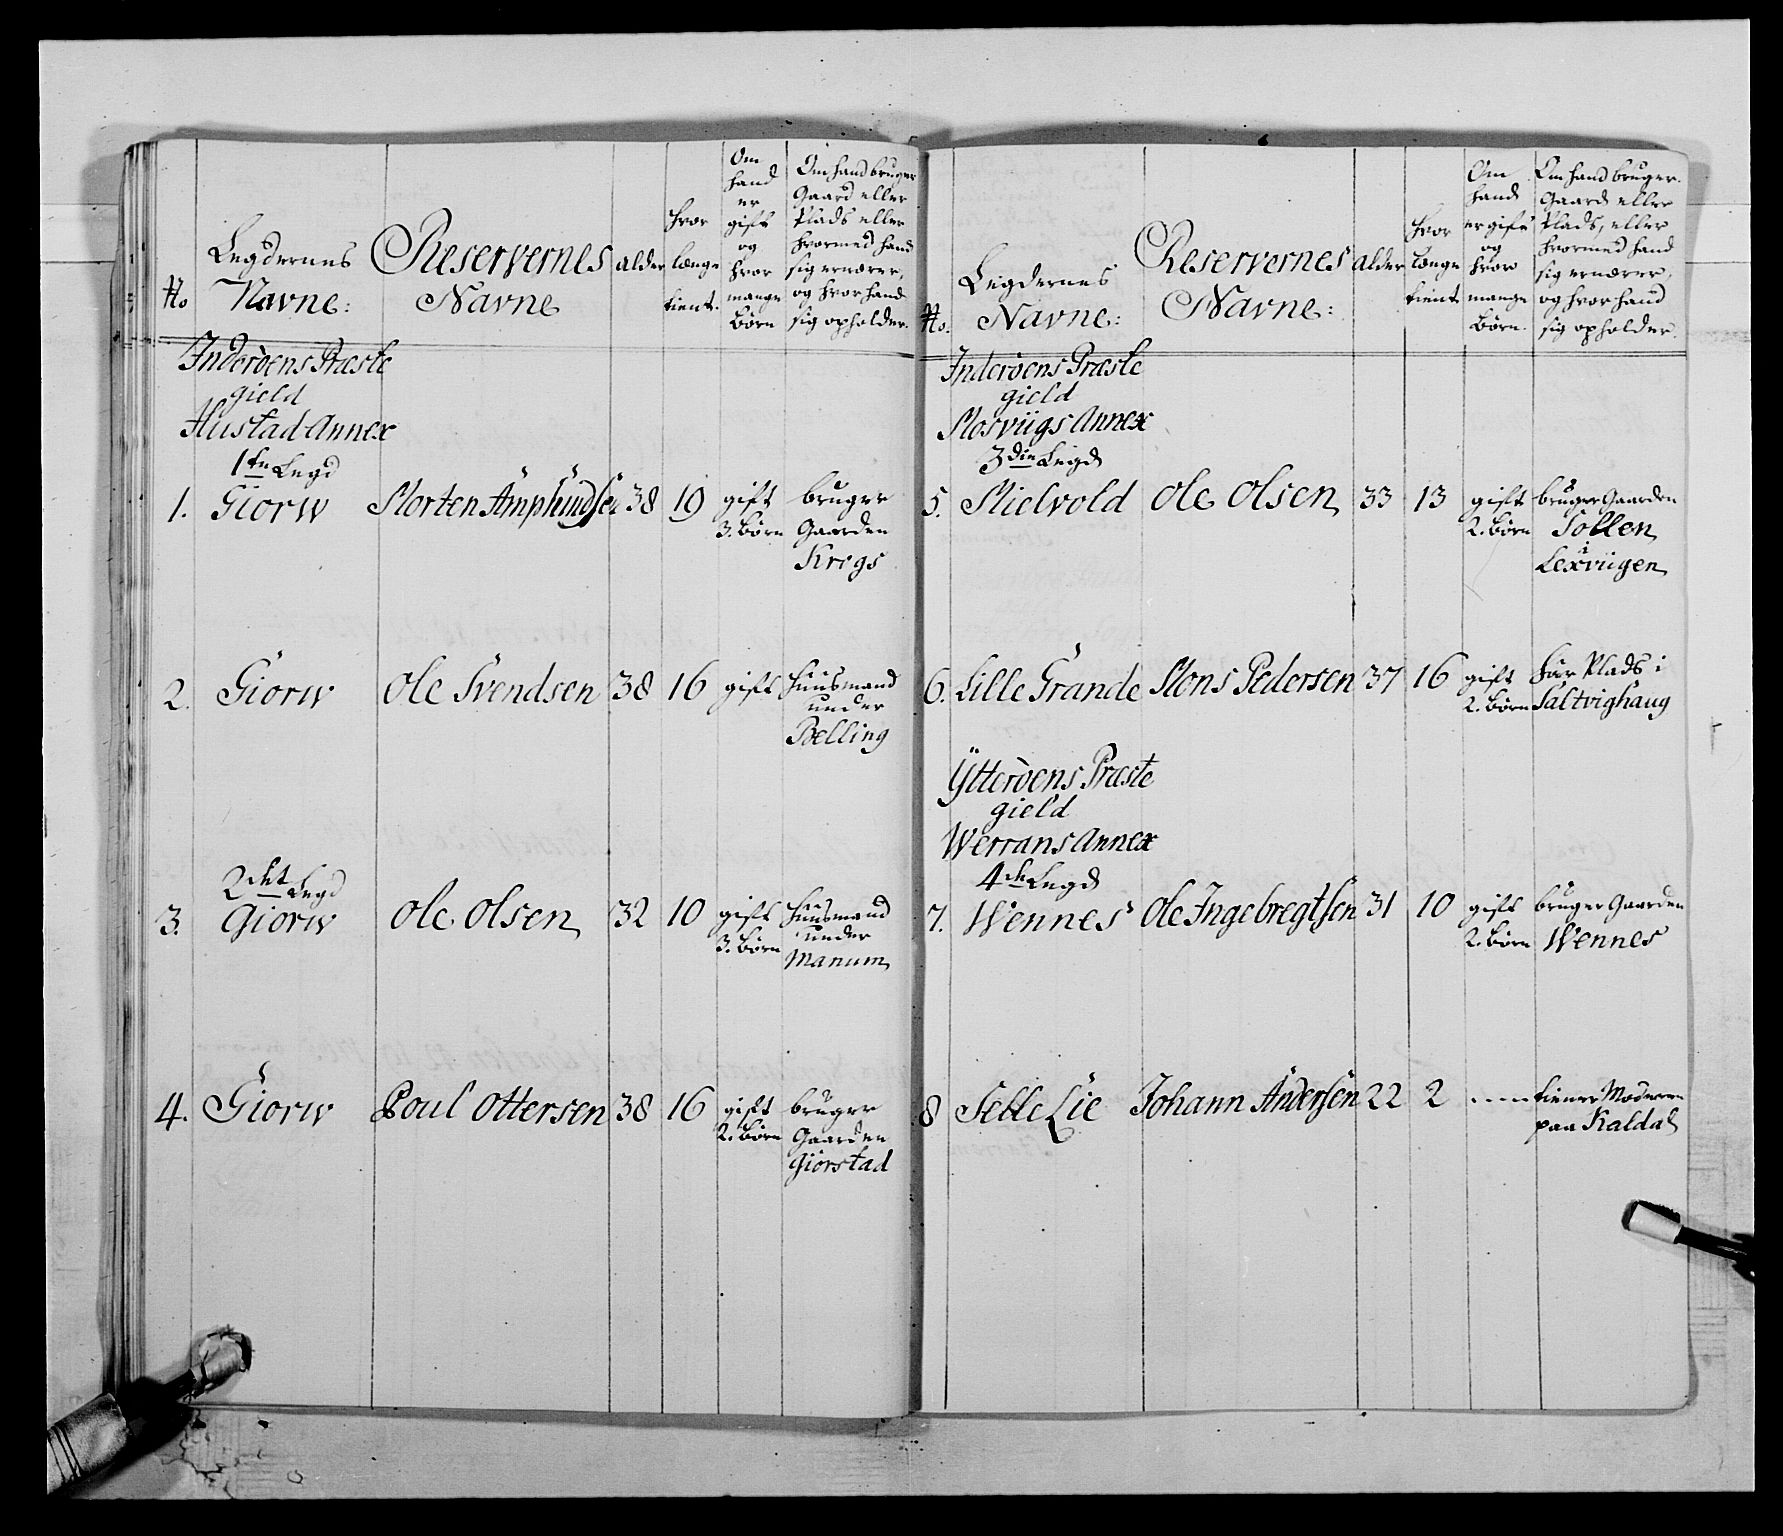 No
Legdernes
Navne:
Reservernes
Navne
alder
hvor
længe
tient.
Om
hand
er
gift
og
hvor
mange
Børn
Om hand bruger
Gaard eller
Plads eller
hvormed hand
sig ernærer,
og hvor hand
sig opholder.
Inderöens Præste
gield
Hustad Annex
1ste Legd
1. Giörw Morten Amphindsen 38 19 gift bruger
3. börn Gaarden
Krogs
2. Giörw Ole Svendsen 38 16 gift Huusmand
under
Belling
2det Legd
3. Giörw Ole Olsen 32 10 gift Huusmand
3. börn under
Manum
4. Giörw Poul Ottersen 38 16 gift bruger
2. börn Gaarden
Giörstad
No.
Legdernes
Navne:
Reservernes
Navne:
alder
hvor
længe
tient
Om
hand
er gift
og
hvor
mange
Børn.
Om hand bruger
Gaard eller
Plads, eller
hvormed hand
sig ernærer,
og hvor hand
sig opholder.
Inderöens Præste
gield
Mosviigs Annex
3die Legd
5. Mielvold Ole Olsen 33 13 gift bruger Gaarden
2. börn Sollen
i
Lexviigen
6. Lille Grande Mons Pedersen 37 16 gift har Plads i
2. börn Saltvighaug
Ytteröens Præste
gield
Werrans Annex
4de Legd
7. Wennes Ole Ingebregtsen 31 10 gift bruger Gaarden
2. börn Wennes
8 Selle Lie Johann Andersen 22 2 ..... tiener Moderen
paa Kaldal